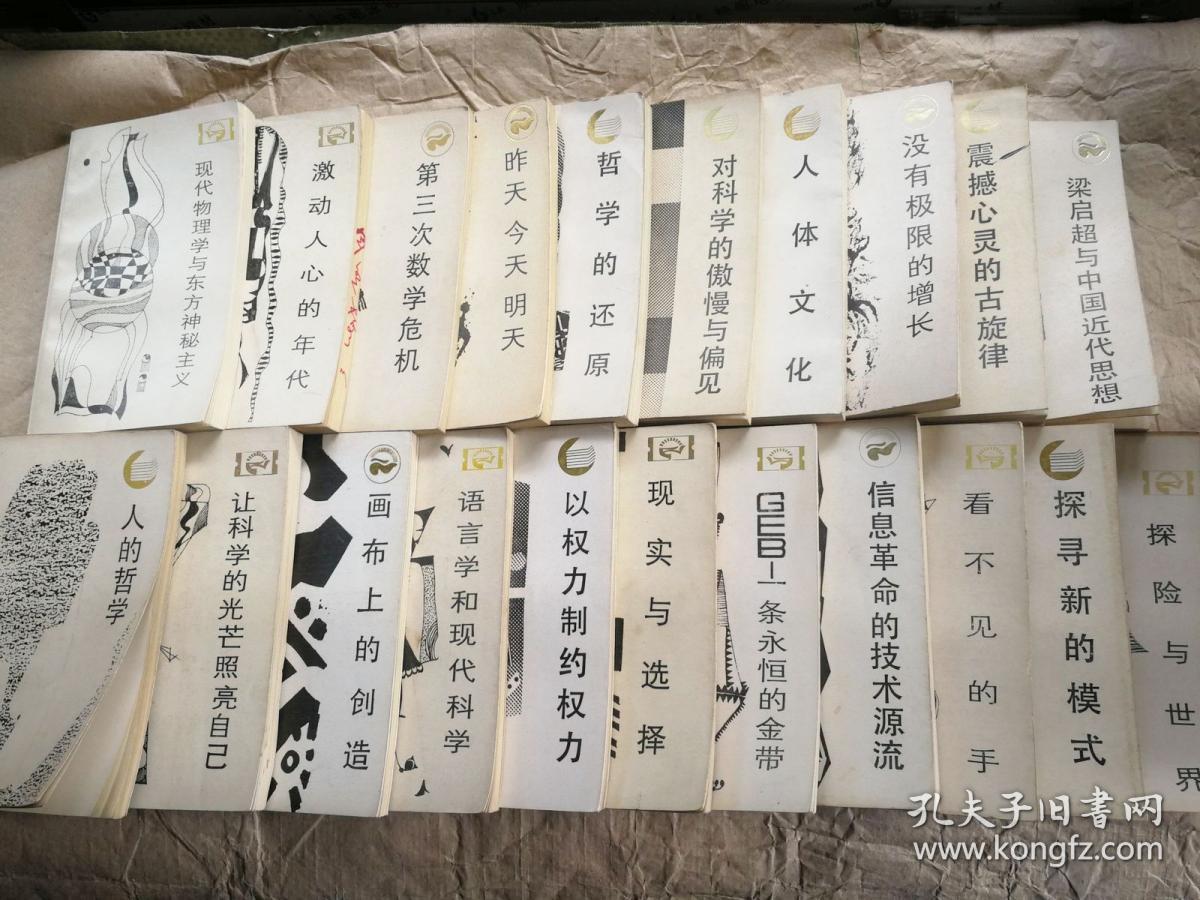 现代物理学与东方神秘主义
激动人心的年代
第三次数学危机
昨天 今天 明天
哲学的还原
对科学的傲慢与偏见
人体文化
没有极限的增长
震撼心灵的古旋律
梁启超与中国近代思想
人的哲学
让科学的光芒照亮自己
画布上的创造
语言学和现代科学
以权力制约权力
现实与选择
GEB—一条永恒的金带
信息革命的技术源流
看不见的手
探寻新的模式
探险与世界
孔夫子旧书网
www.kongfz.com